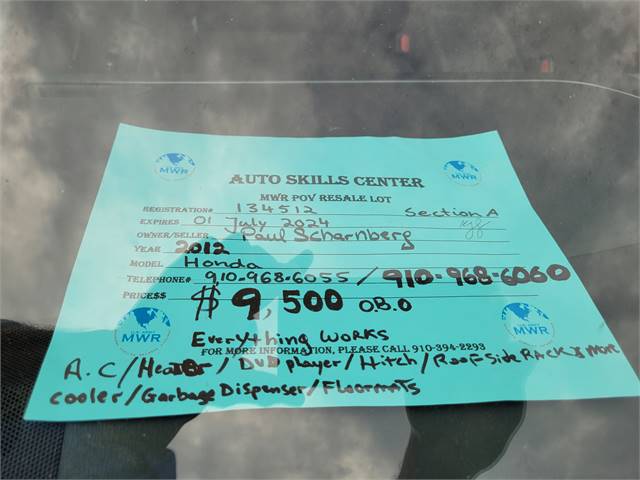 AUTO SKILLS CENTER
MWR POV RESALE LOT
REGISTRATION# 134512 Section A
EXPIRES 01 July 2024
OWNER/SELLER Paul Scharnberg
YEAR 2012
MODEL Honda
TELEPHONE# 910-968-6055 / 910-968-6060
PRICE$$ $ 9,500 O.B.O
Everything Works
FOR MORE INFORMATION, PLEASE CALL 910-394-2293
A.C/Heater/DVD player/Hitch/Roof Side Rack & More
cooler/Garbage Dispenser/Floormats
MWR
MWR
MWR
MWR